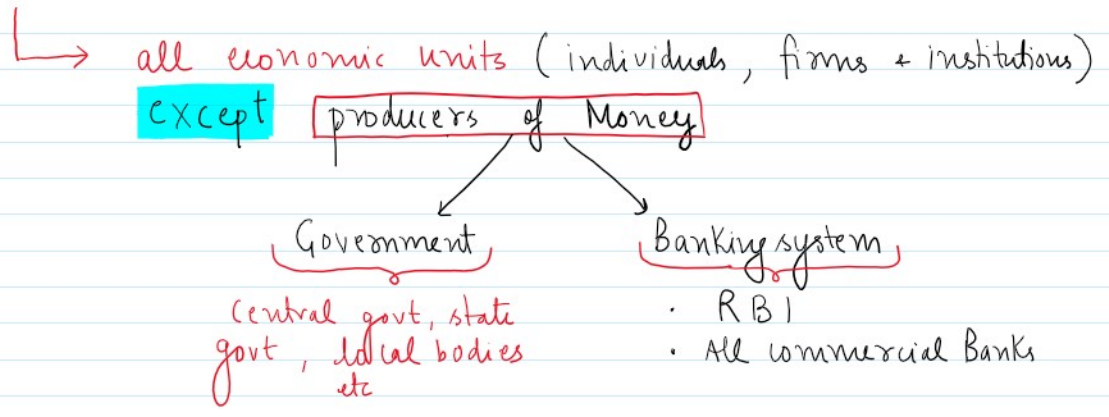 all economic units (individuals, firms + institutions)
except producers of Money
Government Banking system
central govt, state
govt, local bodies
etc
· RBI
· All commercial Banks